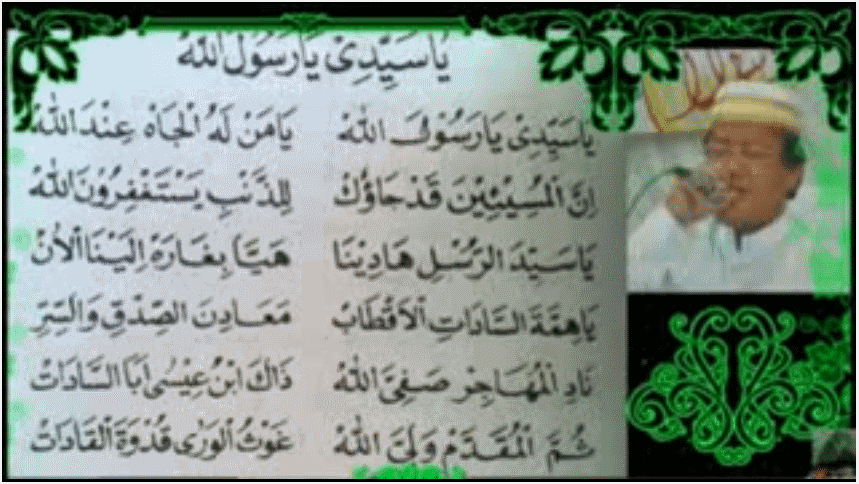 يَا سَيِّدِيْ يَا رَسُوْلَ اللّٰهْ
يَا سَيِّدِيْ يَا رَسُوْلَ اللّٰهْ يَا مَنْ لَهُ الْجَاهْ عِنْدَ اللّٰهْ
اِنَّ الْمُسِيْئِيْنَ قَدْ جَاؤُكْ لِلذَّنْبِ يَسْتَغْفِرُوْنَ اللّٰهْ
يَا سَيِّدَ الرُّسْلِ هَادِيْنَا هَيَّا بِغَارَةْ اِلَيْنَا الْاٰنْ
يَا هِمَّةَ السَّادَاتِ الْاَقْطَابْ مَعَادِنَ الصِّدْقِ وَالسِّرِّ
نَادِ الْمُهَاجِرْ صَفِيَّ اللّٰهْ ذَاكَ ابْنُ عِيْسٰى اَبَا السَّادَاتْ
ثُمَّ الْمُقَدَّمْ وَلِيَّ اللّٰهْ غَوْثُ الْوَرٰى قُدْوَةَ الْقَادَاتْ